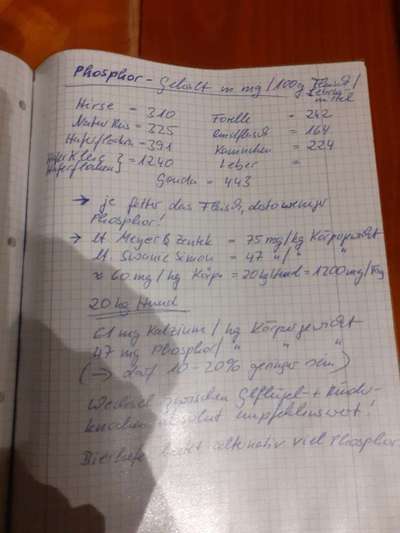 Phosphor - Gehalt in mg/100g Fleisch/
Lebens
mittel
Hirse = 310
Forelle = 242
Natur Reis = 325
Rindfleisch = 164
Haferflocken = 391
Kaninchen = 224
Haferkleie }
Haferflocken } = 1240
Leber =
Gouda = 443
→ je fetter das Fleisch, desto weniger
Phosphor!
→ lt. Meyer & Zentek = 75 mg/kg Körpergewicht
lt. Swanie Simon = 47 "/" "
≈ 60 mg/kg Körper = 20 kg Hund = 1200 mg/Tag
20 kg Hund
61 mg Kalzium/kg Körpergewicht
47 mg Phosphor/ " " "
(→ darf 10-20% geringer sein)
Wechsel zwischen Geflügel- + Rinder-
knochen absolut empfehlenswert!
Bierhefe bietet alternativ viel Phosphor